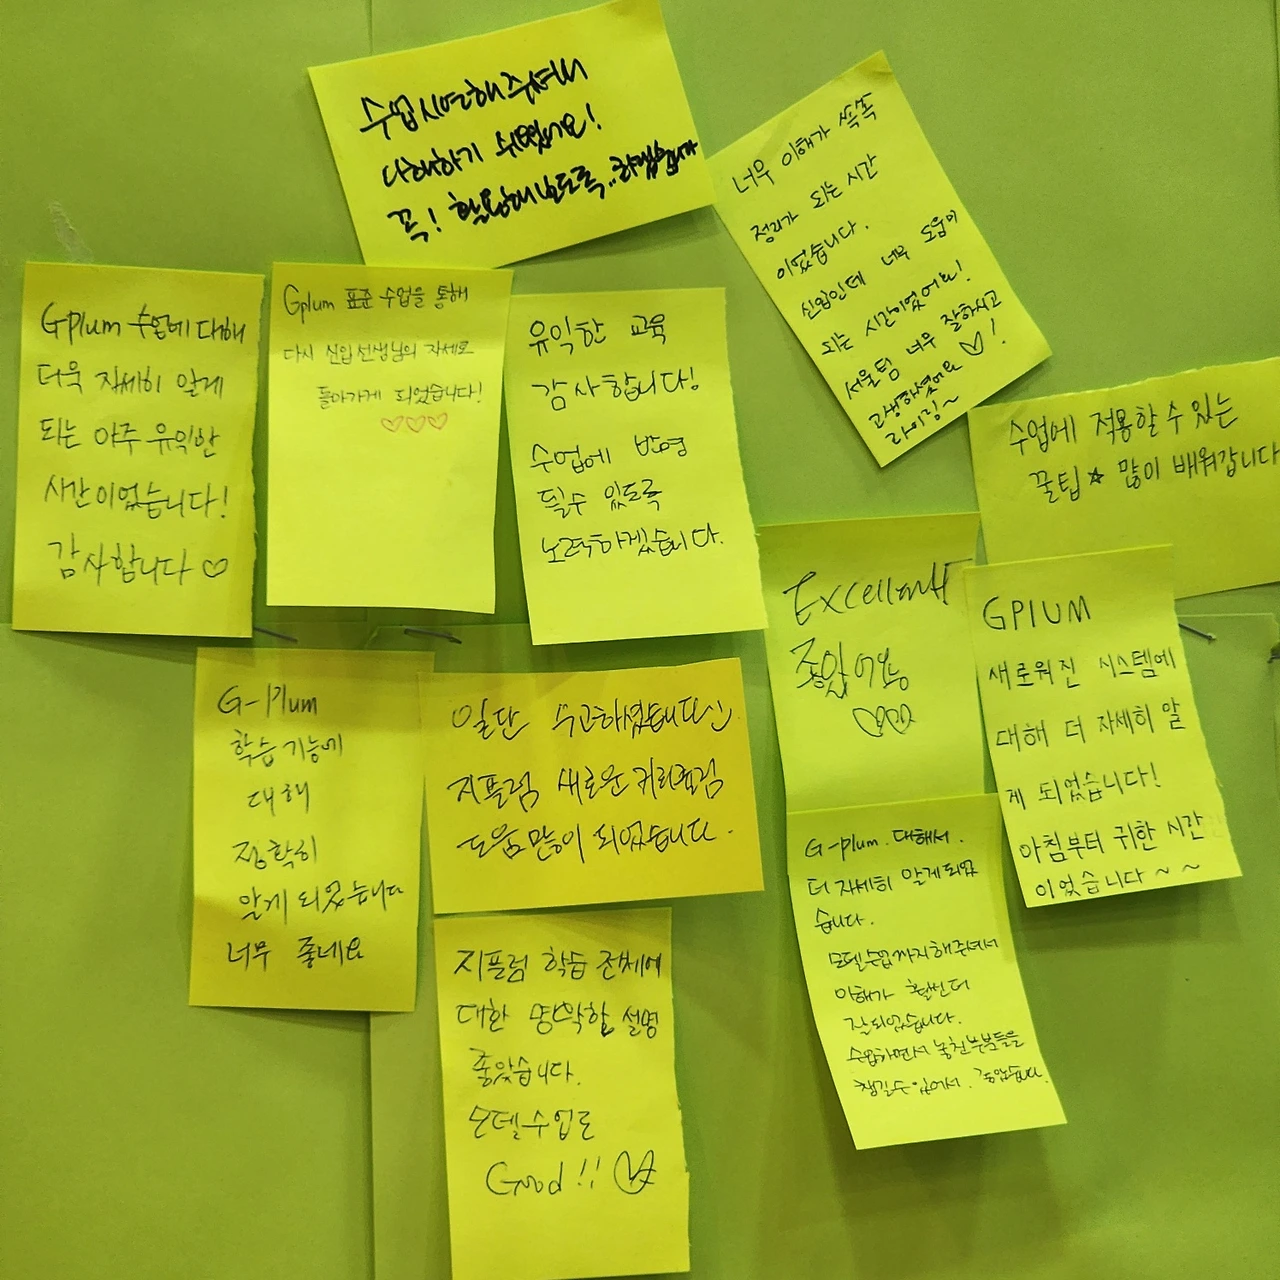 수업시연해주셔서
이해하기 쉬웠어요!
꼭! 활용해보도록..하겠습니다
너무 이해가 쏙쏙
정리가 되는 시간
이었습니다.
신입인데 너무 도움이
되는 시간이었어요!
서울팀 너무 잘하시고
고생하셨어요 ♡!
라이킹~
Gplum 수업에 대해
더욱 자세히 알게
되는 아주 유익한
시간이었습니다!
감사합니다 ♡
Gplum 표준 수업을 통해
다시 신입선생님의 자세로
돌아가게 되었습니다!
♡♡♡
유익한 교육
감사합니다!
수업에 반영
될수 있도록
노력하겠습니다.
수업에 적용할 수 있는
꿀팁☆ 많이 배워갑니다
Excellent
좋았어용
♡♡
GPIUM
새로워진 시스템에
대해 더 자세히 알
게 되었습니다!
아침부터 귀한 시간
이었습니다 ~ ~
G-Plum
학습기능에
대해
정확히
알게 되었습니다
너무 좋네요
일단 수고하셨습니다
지플럼 새로운 커리큘럼
도움많이 되었습니다.
G-plum. 대해서.
더 자세히 알게되었
습니다.
모델수업까지해주셔서
이해가 훨씬더
잘되었습니다.
수업하면서 놓친부분들을
챙길수있어서. 좋았습니다.
지플럼 학습 전체에
대한 명확한 설명
좋았습니다.
모델수업도
Good!! ♡